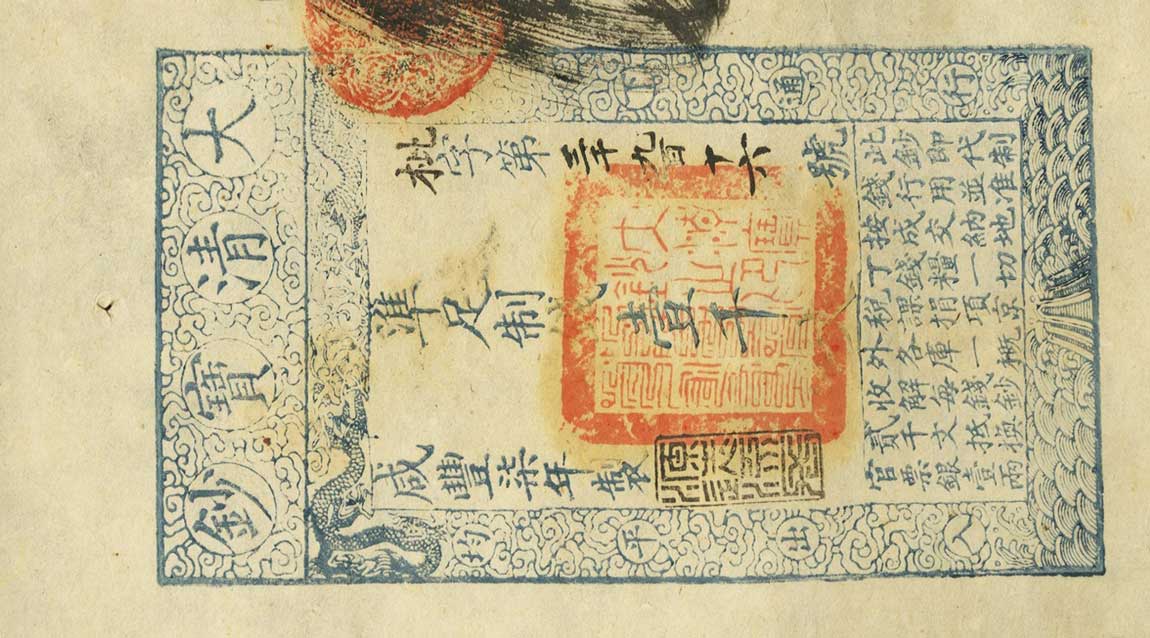 大清寶鈔
通行
枇字第三千九百十六號
準足制錢壹千
咸豐柒年製
均平出入
此鈔即代制
錢行用並准
按成交納地
丁錢糧一切
稅課捐項京
外各庫一概
收解每錢鈔
貳千文抵換
官票銀壹兩